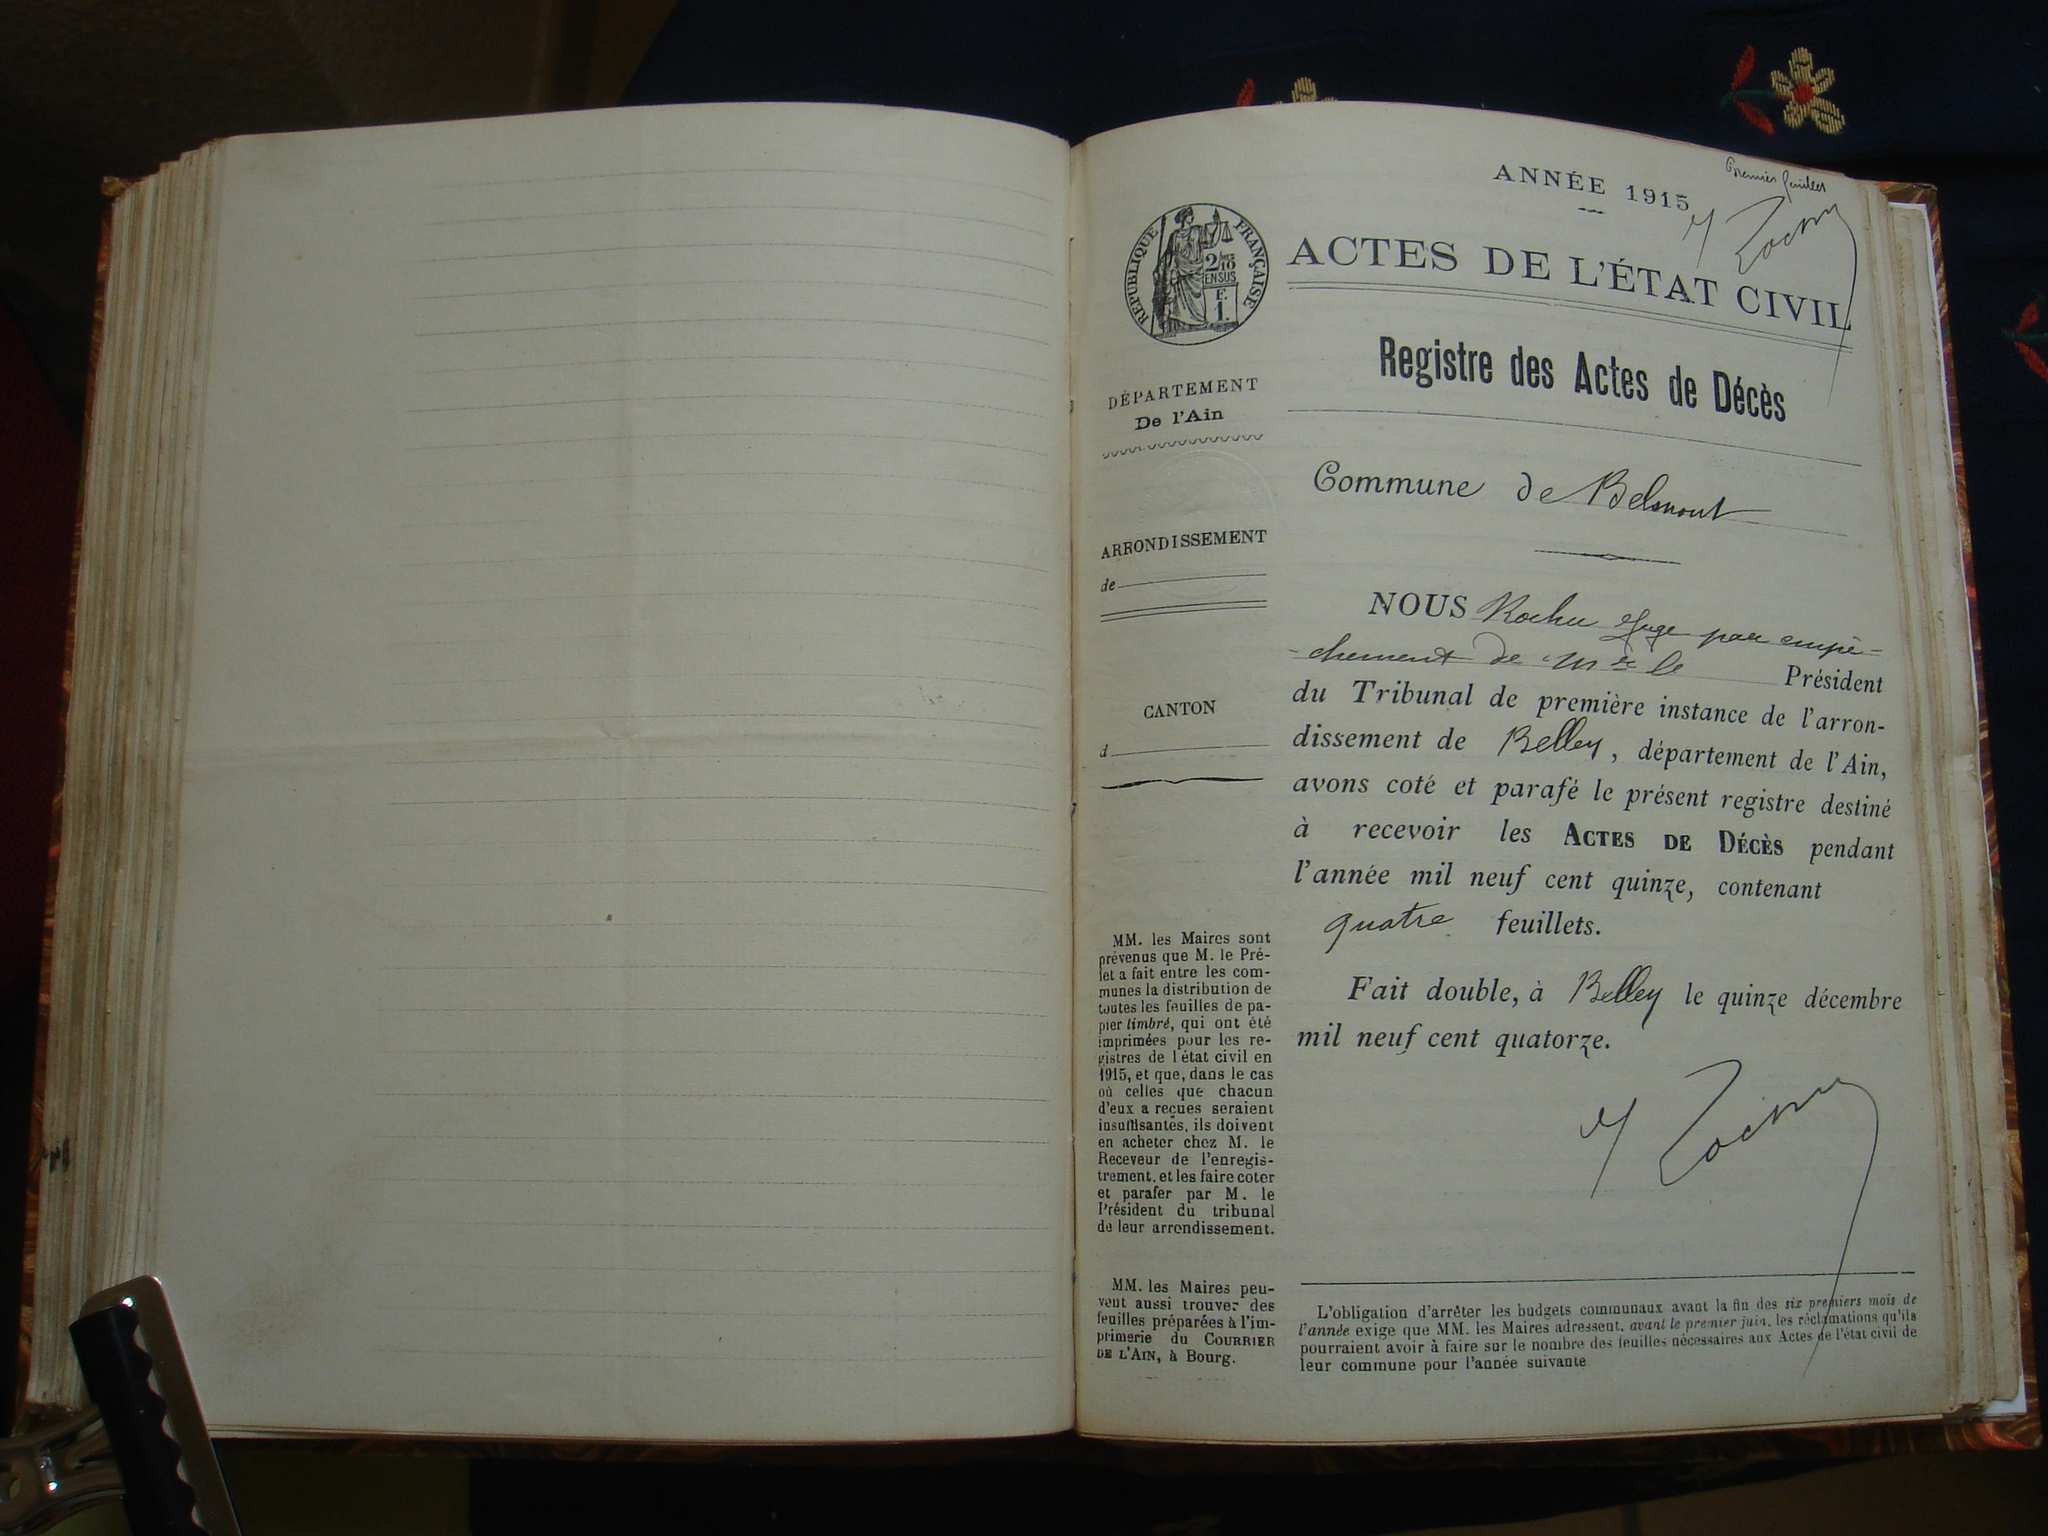 Premier feuillet
ANNÉE 1915
ACTES DE L'ÉTAT CIVIL
RÉPUBLIQUE FRANÇAISE
2 10
EN SUS
F.
1.
Registre des Actes de Décès
DÉPARTEMENT
De l'Ain
Commune de Belmont
ARRONDISSEMENT
de
NOUS Rochu Juge par empê-
chement de Mr le Président
du Tribunal de première instance de l'arron-
dissement de Belley, département de l'Ain,
avons coté et parafé le présent registre destiné
à recevoir les ACTES DE DÉCÈS pendant
l'année mil neuf cent quinze, contenant
quatre feuillets.
Fait double, à Belley le quinze décembre
mil neuf cent quatorze.
CANTON
d
MM. les Maires sont
prévenus que M. le Pré-
fet a fait entre les com-
munes la distribution de
toutes les feuilles de pa-
pier timbré, qui ont été
imprimées pour les re-
gistres de l'état civil en
1915, et que, dans le cas
où celles que chacun
d'eux a reçues seraient
insuffisantes, ils doivent
en acheter chez M. le
Receveur de l'enregis-
trement, et les faire coter
et parafer par M. le
Président du tribunal
de leur arrondissement.
MM. les Maires peu-
vent aussi trouver des
feuilles préparées à l'im-
primerie du COURRIER
DE L'AIN, à Bourg.
L'obligation d'arrêter les budgets communaux avant la fin des six premiers mois de
l'année exige que MM. les Maires adressent, avant le premier juin, les réclamations qu'ils
pourraient avoir à faire sur le nombre des feuilles nécessaires aux Actes de l'état civil de
leur commune pour l'année suivante